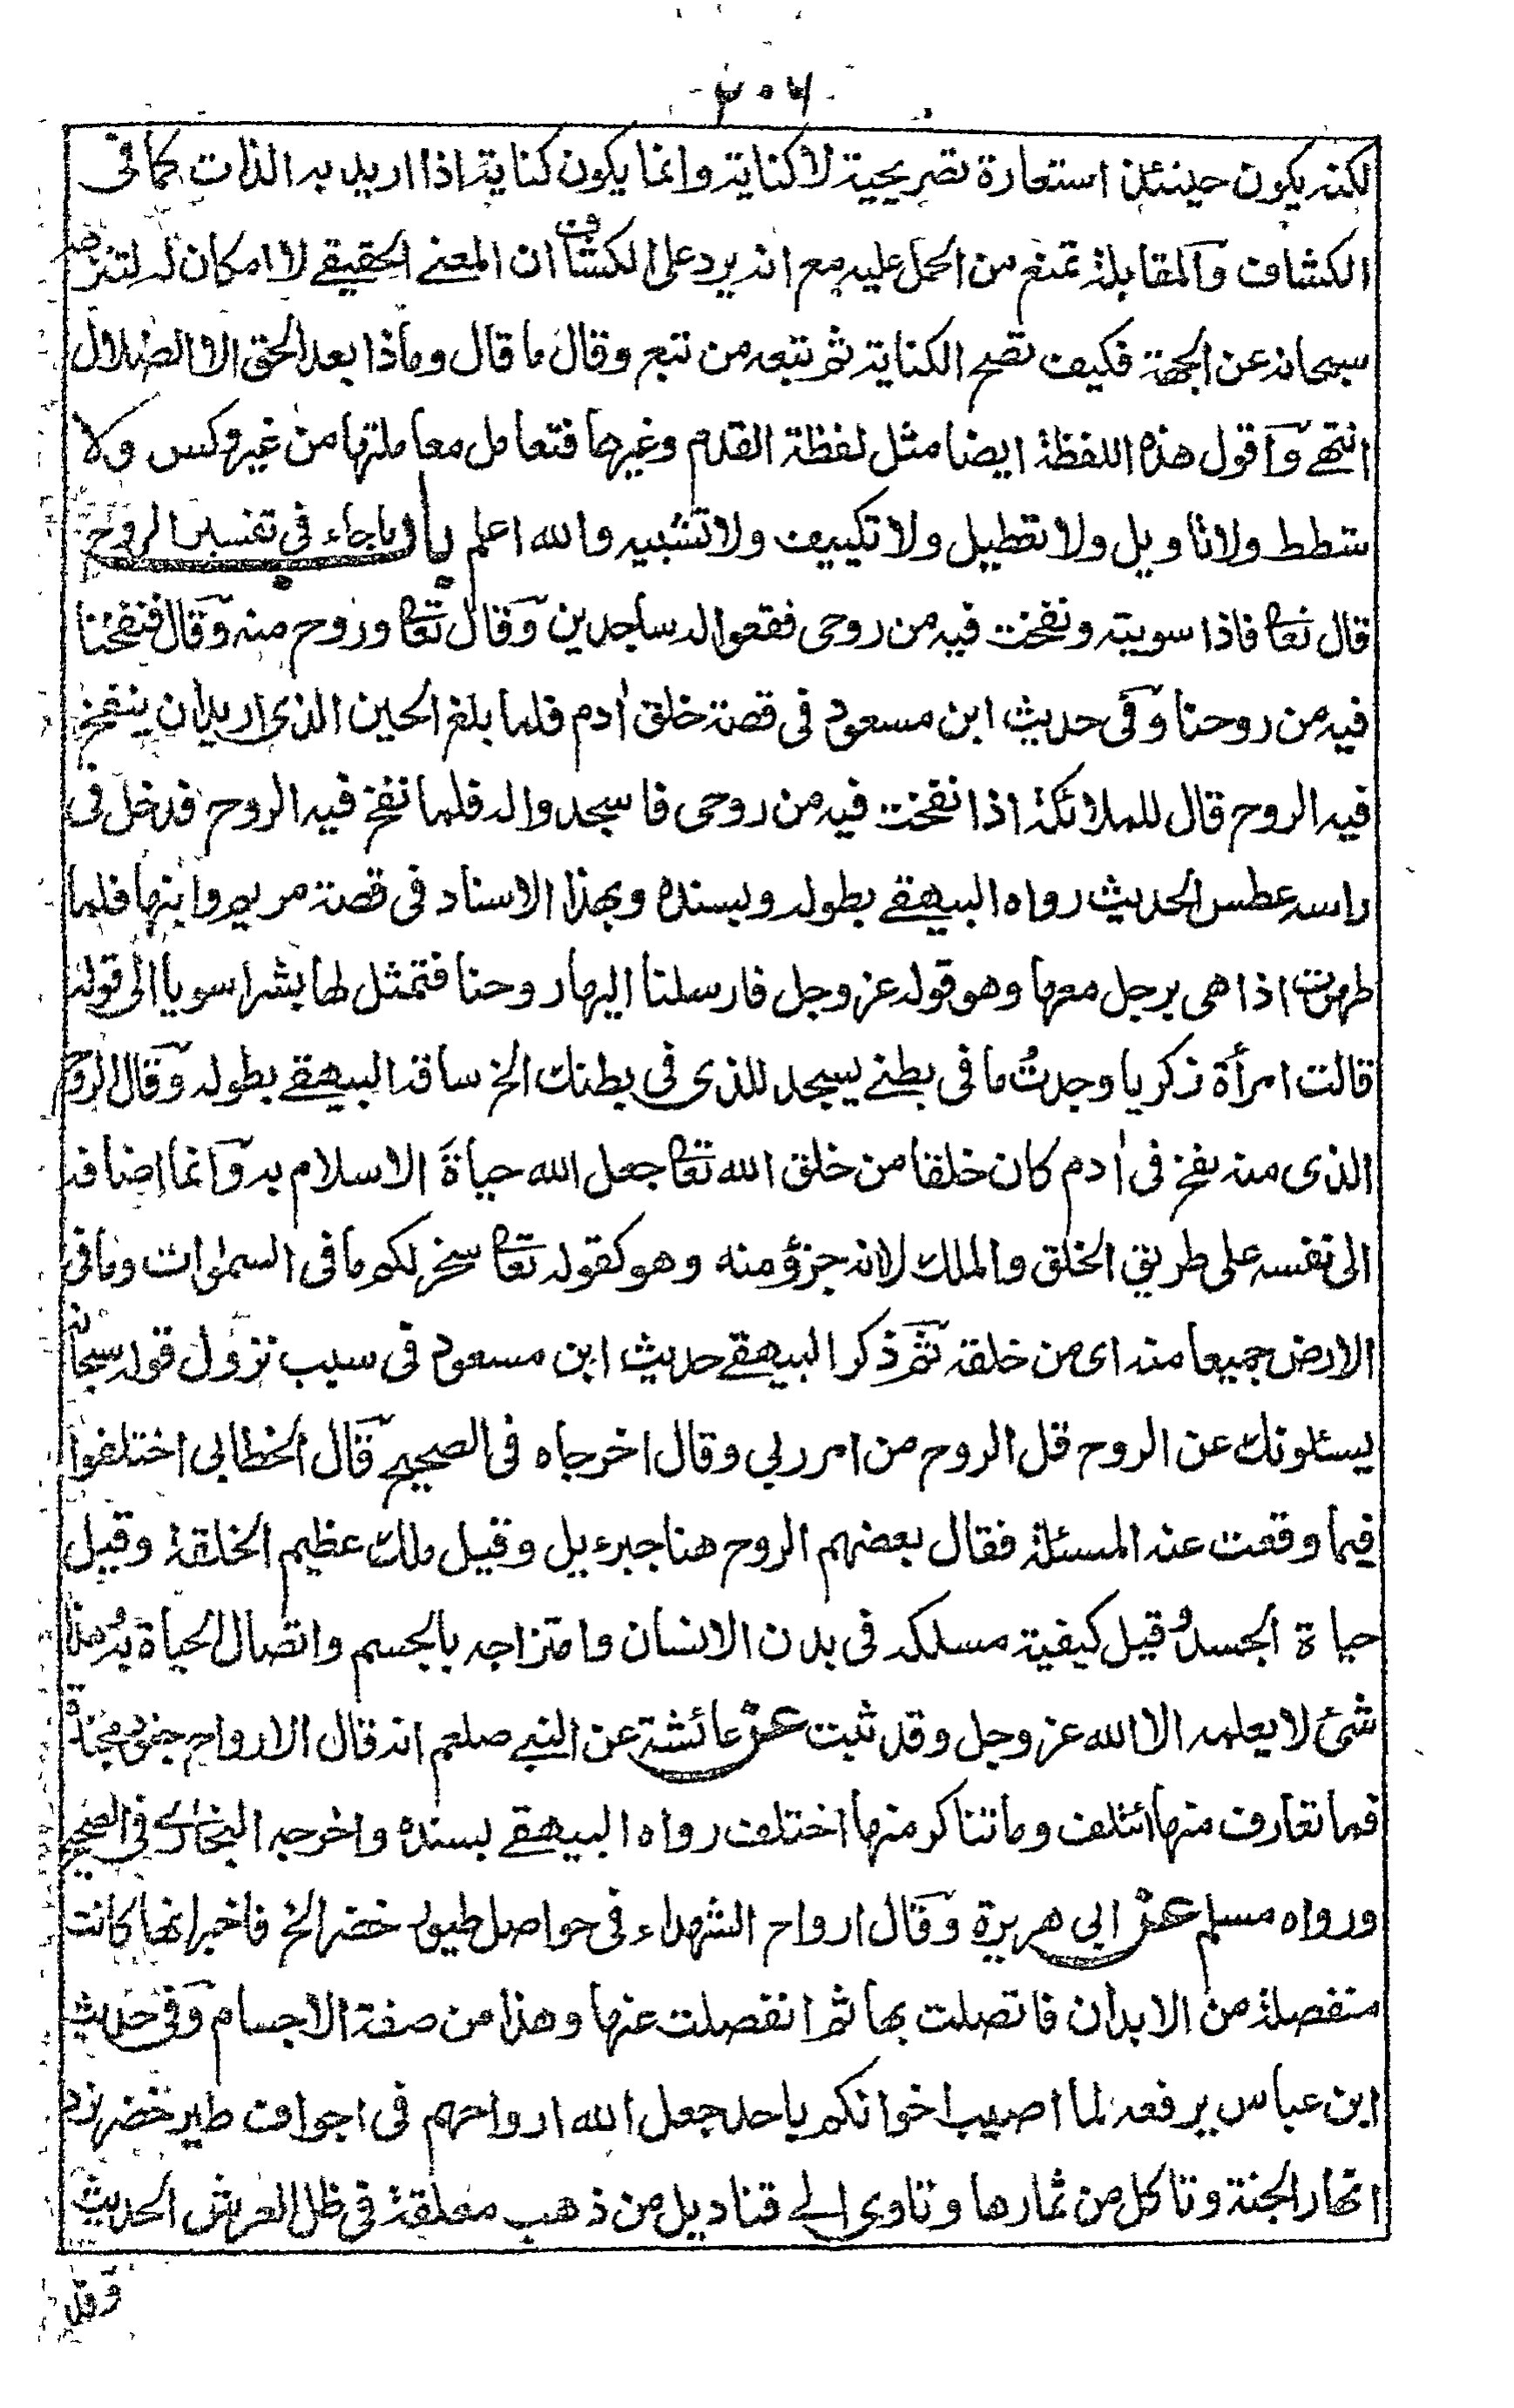 ٢٠٦
لكنه يكون حينئذ استعارة تصريحية لا كناية وانما يكون كناية اذا اريد به الذات كما فى
الكشاف والمقابلة تمنع من الحمل عليه مع انه يرد على الكشاف ان المعنے الحقيقے لا امكان له لتنزهه
سبحانه عن الجهة فكيف تصح الكناية ثم تبعه من تبع وقال ما قال وماذا بعد الحق الا الضلال
انتهے واقول هذه اللفظة ايضا مثل لفظة القدم وغيرها فتعامل معاملتها من غير وكس ولا
شطط ولا تاويل ولا تعطيل ولا تكييف ولا تشبيه والله اعلم باب ما جاء فى تفسير الروح
قال تعا فاذا سويته ونفخت فيه من روحى فقعوا له ساجدين وقال تعا وروح منه وقال فنفخنا
فيه من روحنا وفى حديث ابن مسعود فى قصة خلق اٰدم فلما بلغ الحين الذى اريد ان ينفخ
فيه الروح قال للملائكة اذا نفخت فيه من روحى فاسجدوا له فلما نفخ فيه الروح فدخل فى
راسه عطس الحديث رواه البيهقے بطوله وبسنده وبهذا الاسناد فى قصة مريم وابنها فلما
طهرت اذا هى برجل معها وهو قوله عز وجل فارسلنا اليها روحنا فتمثل لها بشرا سويا الى قوله
قالت امرأة زكريا وجدتُ ما فى بطنے يسجد للذى فى بطنك الخ ساقه البيهقے بطوله وقال الروح
الذى منه نفخ فى اٰدم كان خلقا من خلق الله تعا جعل الله حياةَ الاسلام به وانما اضافه
الى نفسه على طريق الخلق والملك لا انه جزؤ منه وهو كقوله تعا سخر لكم ما فى السمٰوات وما فى
الارض جميعا منه اى من خلقه ثم ذكر البيهقے حديث ابن مسعود فى سبب نزول قوله سبحانه
يسئلونك عن الروح قل الروح من امر ربى وقال اخرجاه فى الصحيح قال الخطابى اختلفوا
فيما وقعت عنه المسئلة فقال بعضهم الروح هنا جبرءيل وقيل ملك عظيم الخلقة وقيل
حياة الجسد وقيل كيفية مسلكه فى بدن الانسان وامتزاجه بالجسم واتصال الحياة به وهذا
شئ لا يعلمه الا الله عز وجل وقد ثبت عن عائشة عن النبے صلعم انه قال الارواح جنود مجندة
فما تعارف منها ائتلف وما تناكر منها اختلف رواه البيهقے بسنده واخرجه البخارى فى الصحيح
ورواه مسلم عن ابى هريرة وقال ارواح الشهداء فى حواصل طيور خضر الخ فاخبر انها كانت
منفصلة من الابدان فاتصلت بها ثم انفصلت عنها وهذا من صفة الاجسام وفى حديث
ابن عباس يرفعه لما اصيب اخوانكم باحد جعل الله ارواحهم فى اجواف طير خضر ترد
انهار الجنة وتاكل من ثمارها وتاوى الے قناديل من ذهب معلقة فى ظل العرش الحديث
وقد